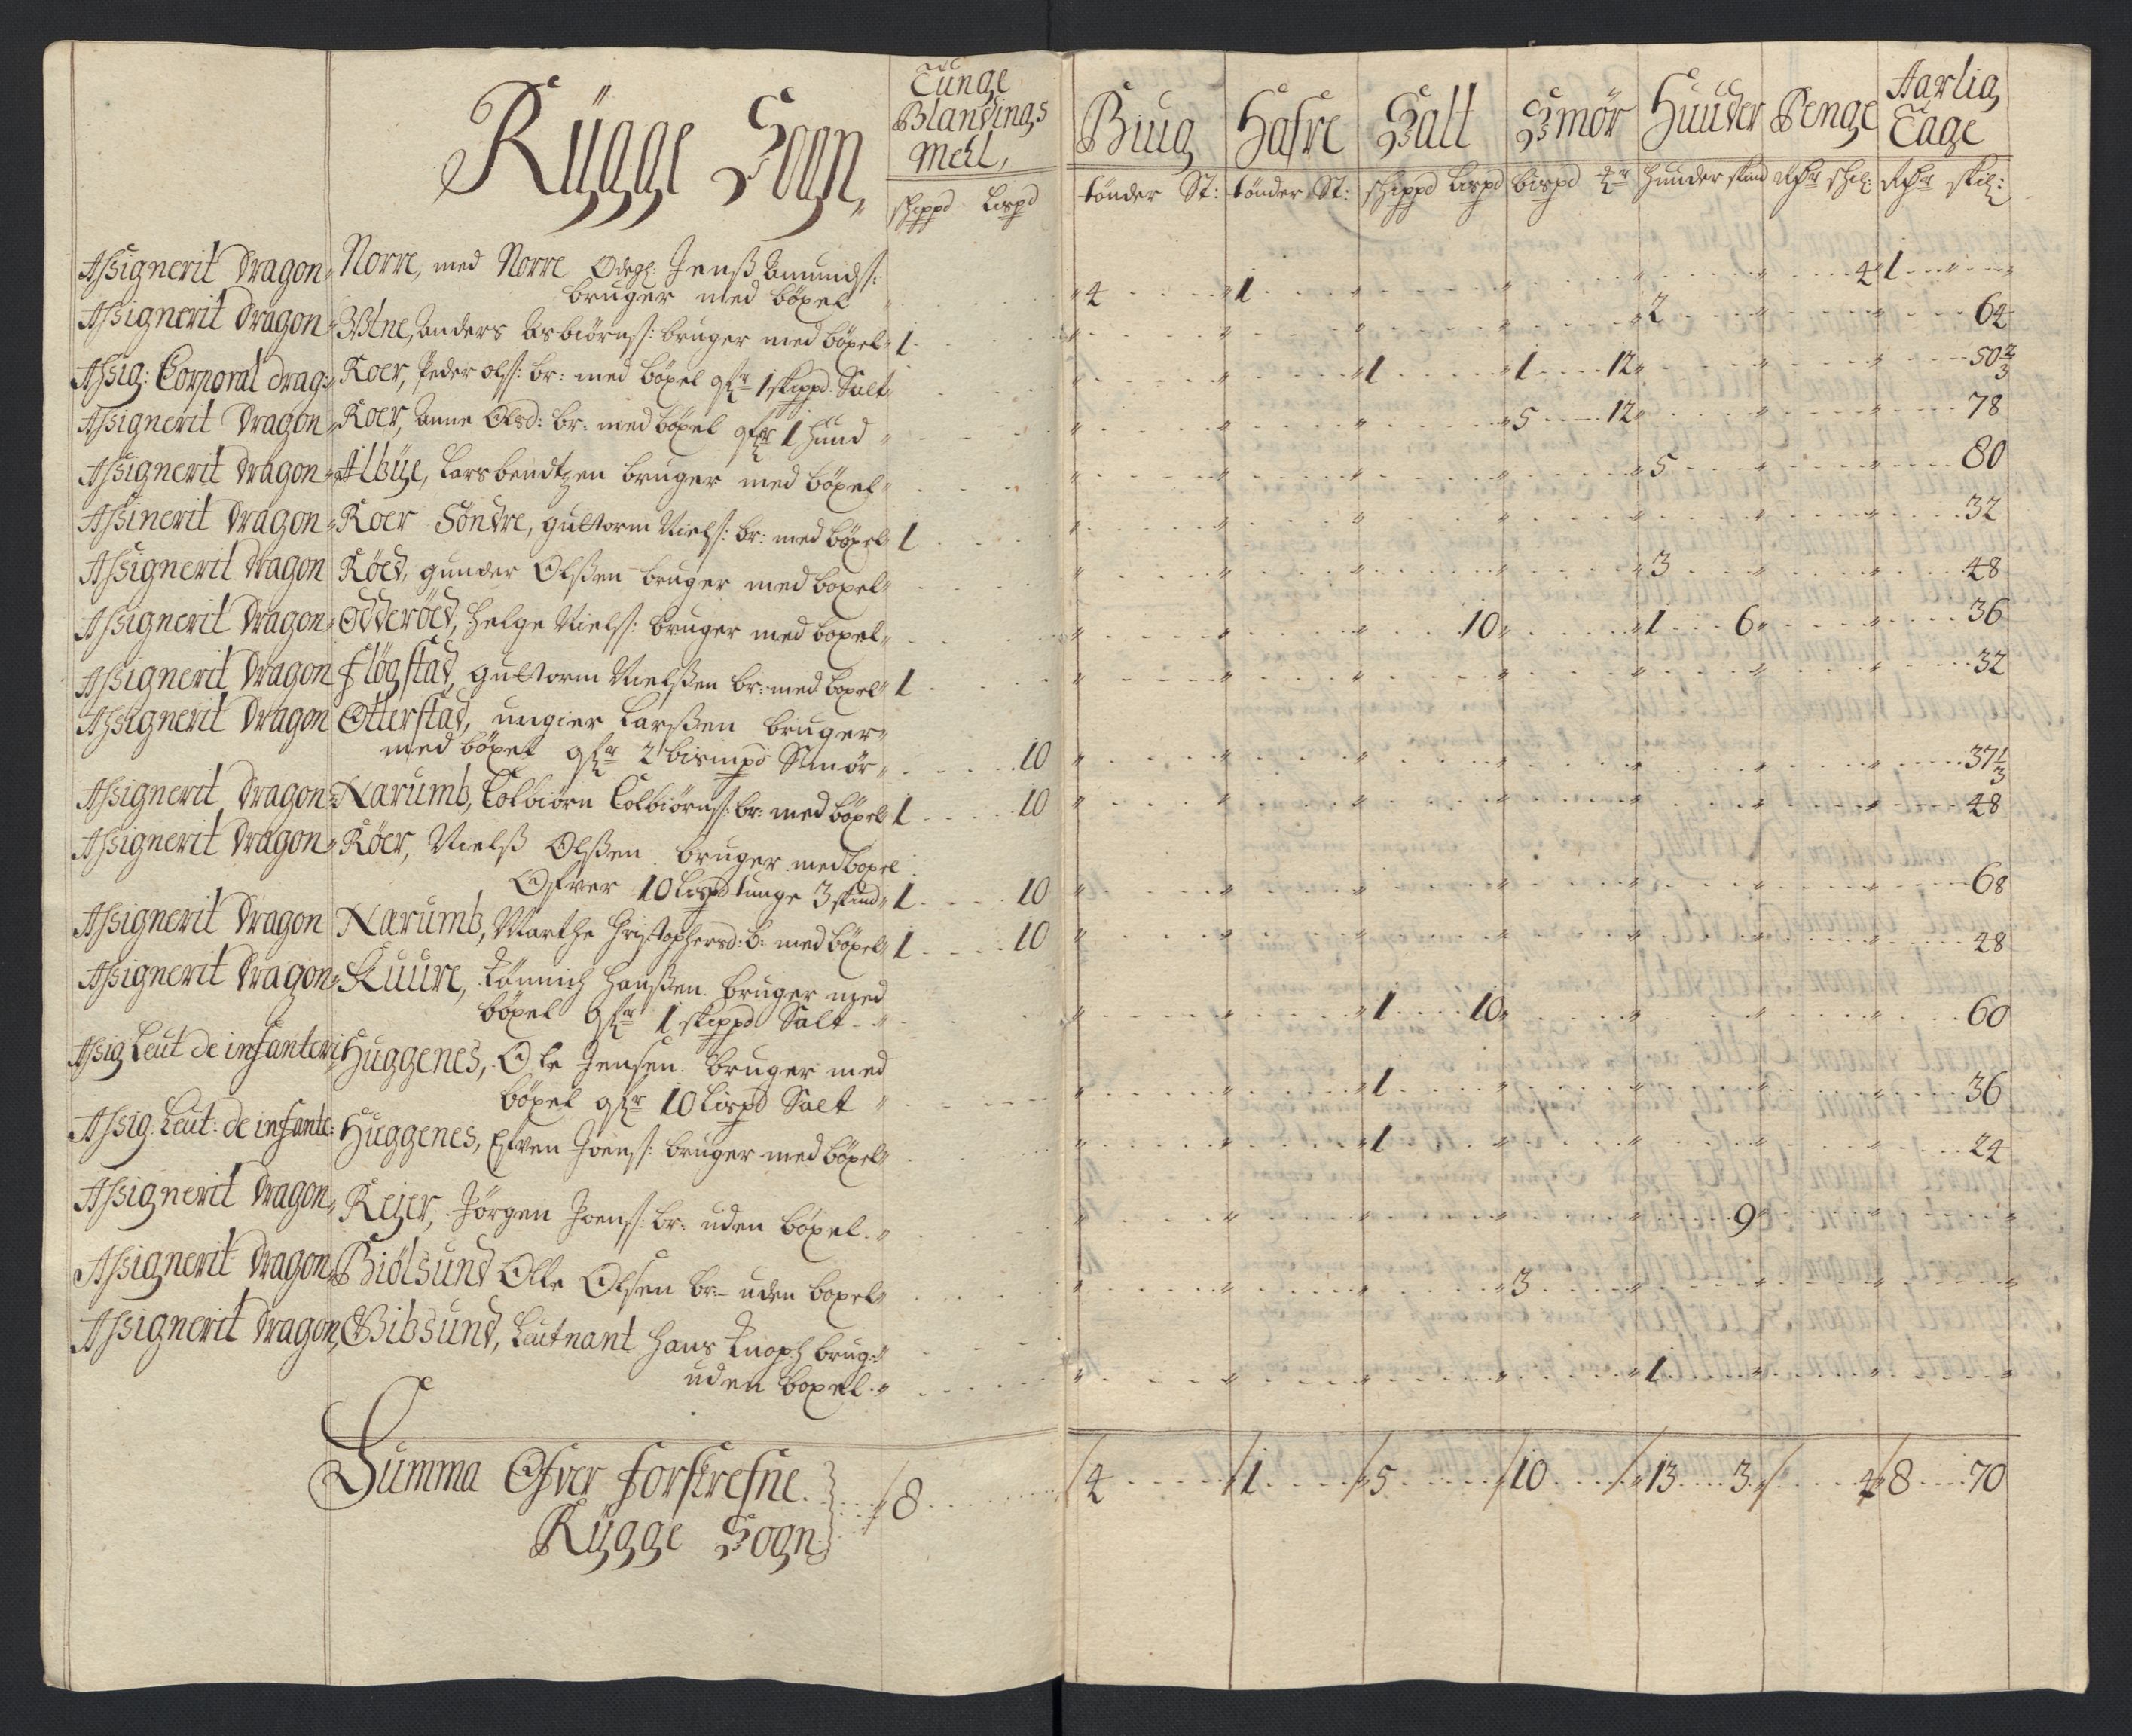 Rÿgge Sogn,
Tunge
Blandings
Mell,
skippd Lispd
Biug Hafre Salt Smør Huuder Penge Aarlig Tage
tønder St: tønder St: skippd Lispd bispd mr Hunder skind Rdr skil: Rdr skil:
Assignerit Dragon Norre, med Norre Ødegl: Jenß Amunds:
bruger med böxel 4 1 4 1
Assignerit Dragon Anders Asbiörns: bruger med böxel 1 2 64
Assig: Corporal drag: Roer, Peder ols: br: med böxel 1 skippd Salt 1 1 12 50 2/3
Assignerit Dragon Roer, Anne Olsd: br: med böxel 1 hund 5 12 78
Assignerit Dragon Albÿe, Lars bendtzen bruger med böxel 5 80
Assinerit Dragon Roer Söndre, gultorm Niels: br: med böxel 1 32
Assignerit Dragon Röed, gunder Olßen bruger med boxel 3 48
Assignerit Dragon Odderöed, Helge Niels: bruger med boxel 10 1 6 36
Assignerit Dragon Flögstad, gultorm Nielßen br: med boxel 1 32
Assignerit Dragon Otterstad, ungier Larßen bruger
med böxel 2 bismpd Smör 10 37 1/3
Assignerit Dragon Narumb, Colbiörn Colbiörns: br: med böxel 1 10 48
Assignerit Dragon Röer, Nielß Olßen bruger med boxel
Ofver 10 Lispd tunge 3 skind 1 10 68
Assignerit Dragon Narumb, Marthe Christophersd: b: med böxel 1 10 48
Assignerit Dragon Kuure, Tönnich Hanßen bruger med
böxel 1 skippd Salt 1 10 60
Assig Leut de infanteri Huggenes, Ole Jensen bruger med
böxel 10 Lispd Salt 1 36
Assig: Leut: de infante: Huggenes, Efven Joens: bruger med böxel 1 24
Assignerit Dragon Reÿer, Jörgen Joens: br: uden böxel 9
Assignerit Dragon Biölsund Olle Olsen br: uden boxel 3
Assignerit Dragon Bibsund, Leutnant Hans Knoph brug:
uden boxel 1
Summa Ofver forskrefne
Rÿgge Sogn 8 4 1 5 10 13 3 4 8 70